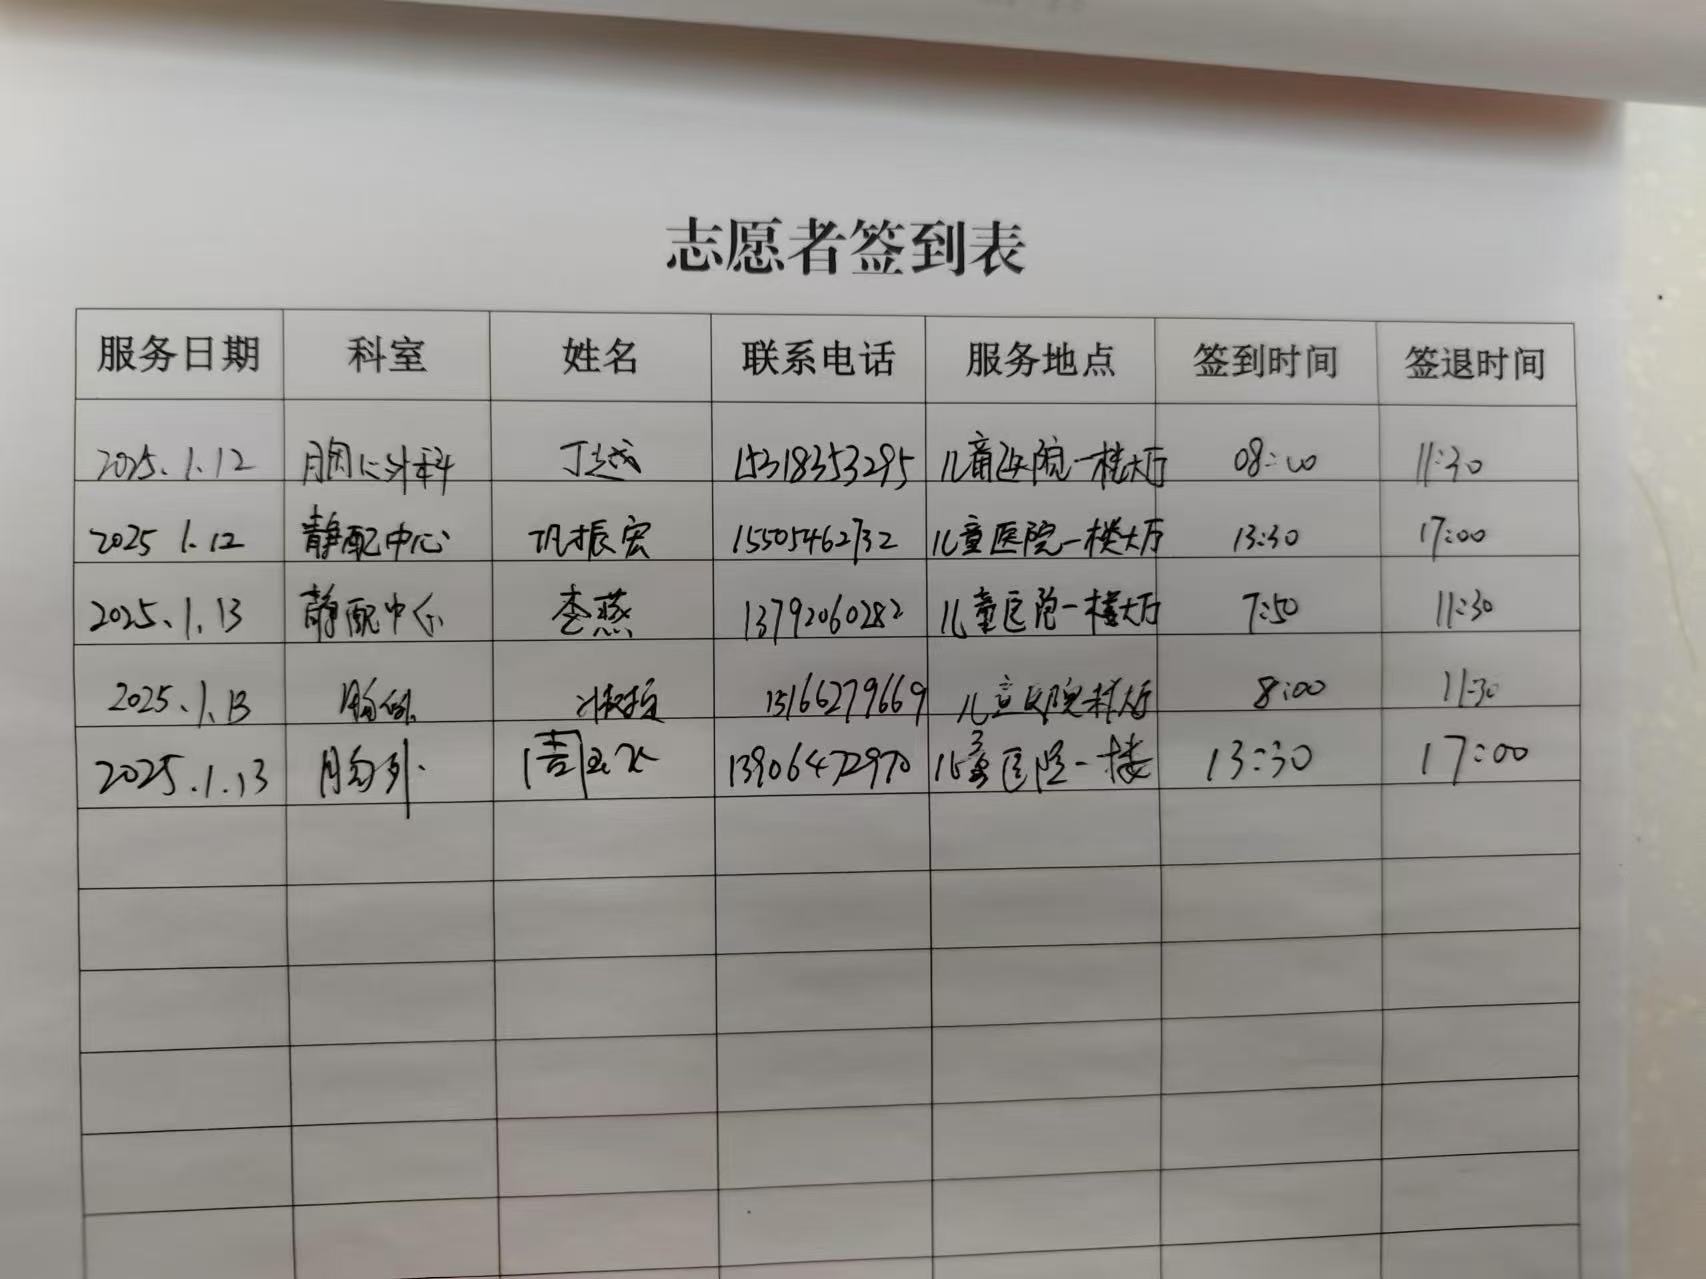 志愿者签到表
服务日期 科室 姓名 联系电话 服务地点 签到时间 签退时间
2025.1.12 胸心外科 丁越 15318353295 儿童医院一楼大厅 08:00 11:30
2025 1.12 静配中心 巩振宏 15505462732 儿童医院一楼大厅 13:30 17:00
2025.1.13 静配中心 李燕 13792060282 儿童医院一楼大厅 7:50 11:30
2025.1.13 胸外 15166279669 儿童医院一楼大厅 8:00 11:30
2025.1.13 胸外 周 13906472970 儿童医院一楼 13:30 17:00